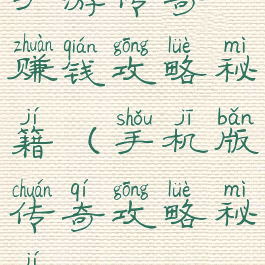 手游传奇
zhuàn qián gōng lüè mì
赚钱攻略秘
jí shǒu jī bǎn
籍(手机版
chuán qí gōng lüè mì
传奇攻略秘
jí